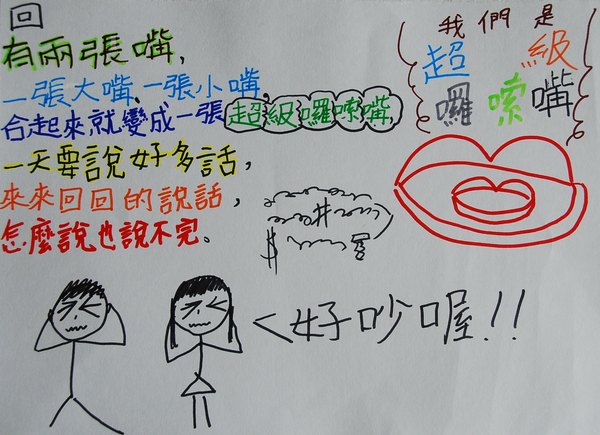 回
有兩張嘴,
一張大嘴、一張小嘴,
合起來就變成一張超級囉嗦嘴,
一天要說好多話,
來來回回的說話,
怎麼說也說不完。
我們是
超級
囉嗦嘴
好吵喔!!